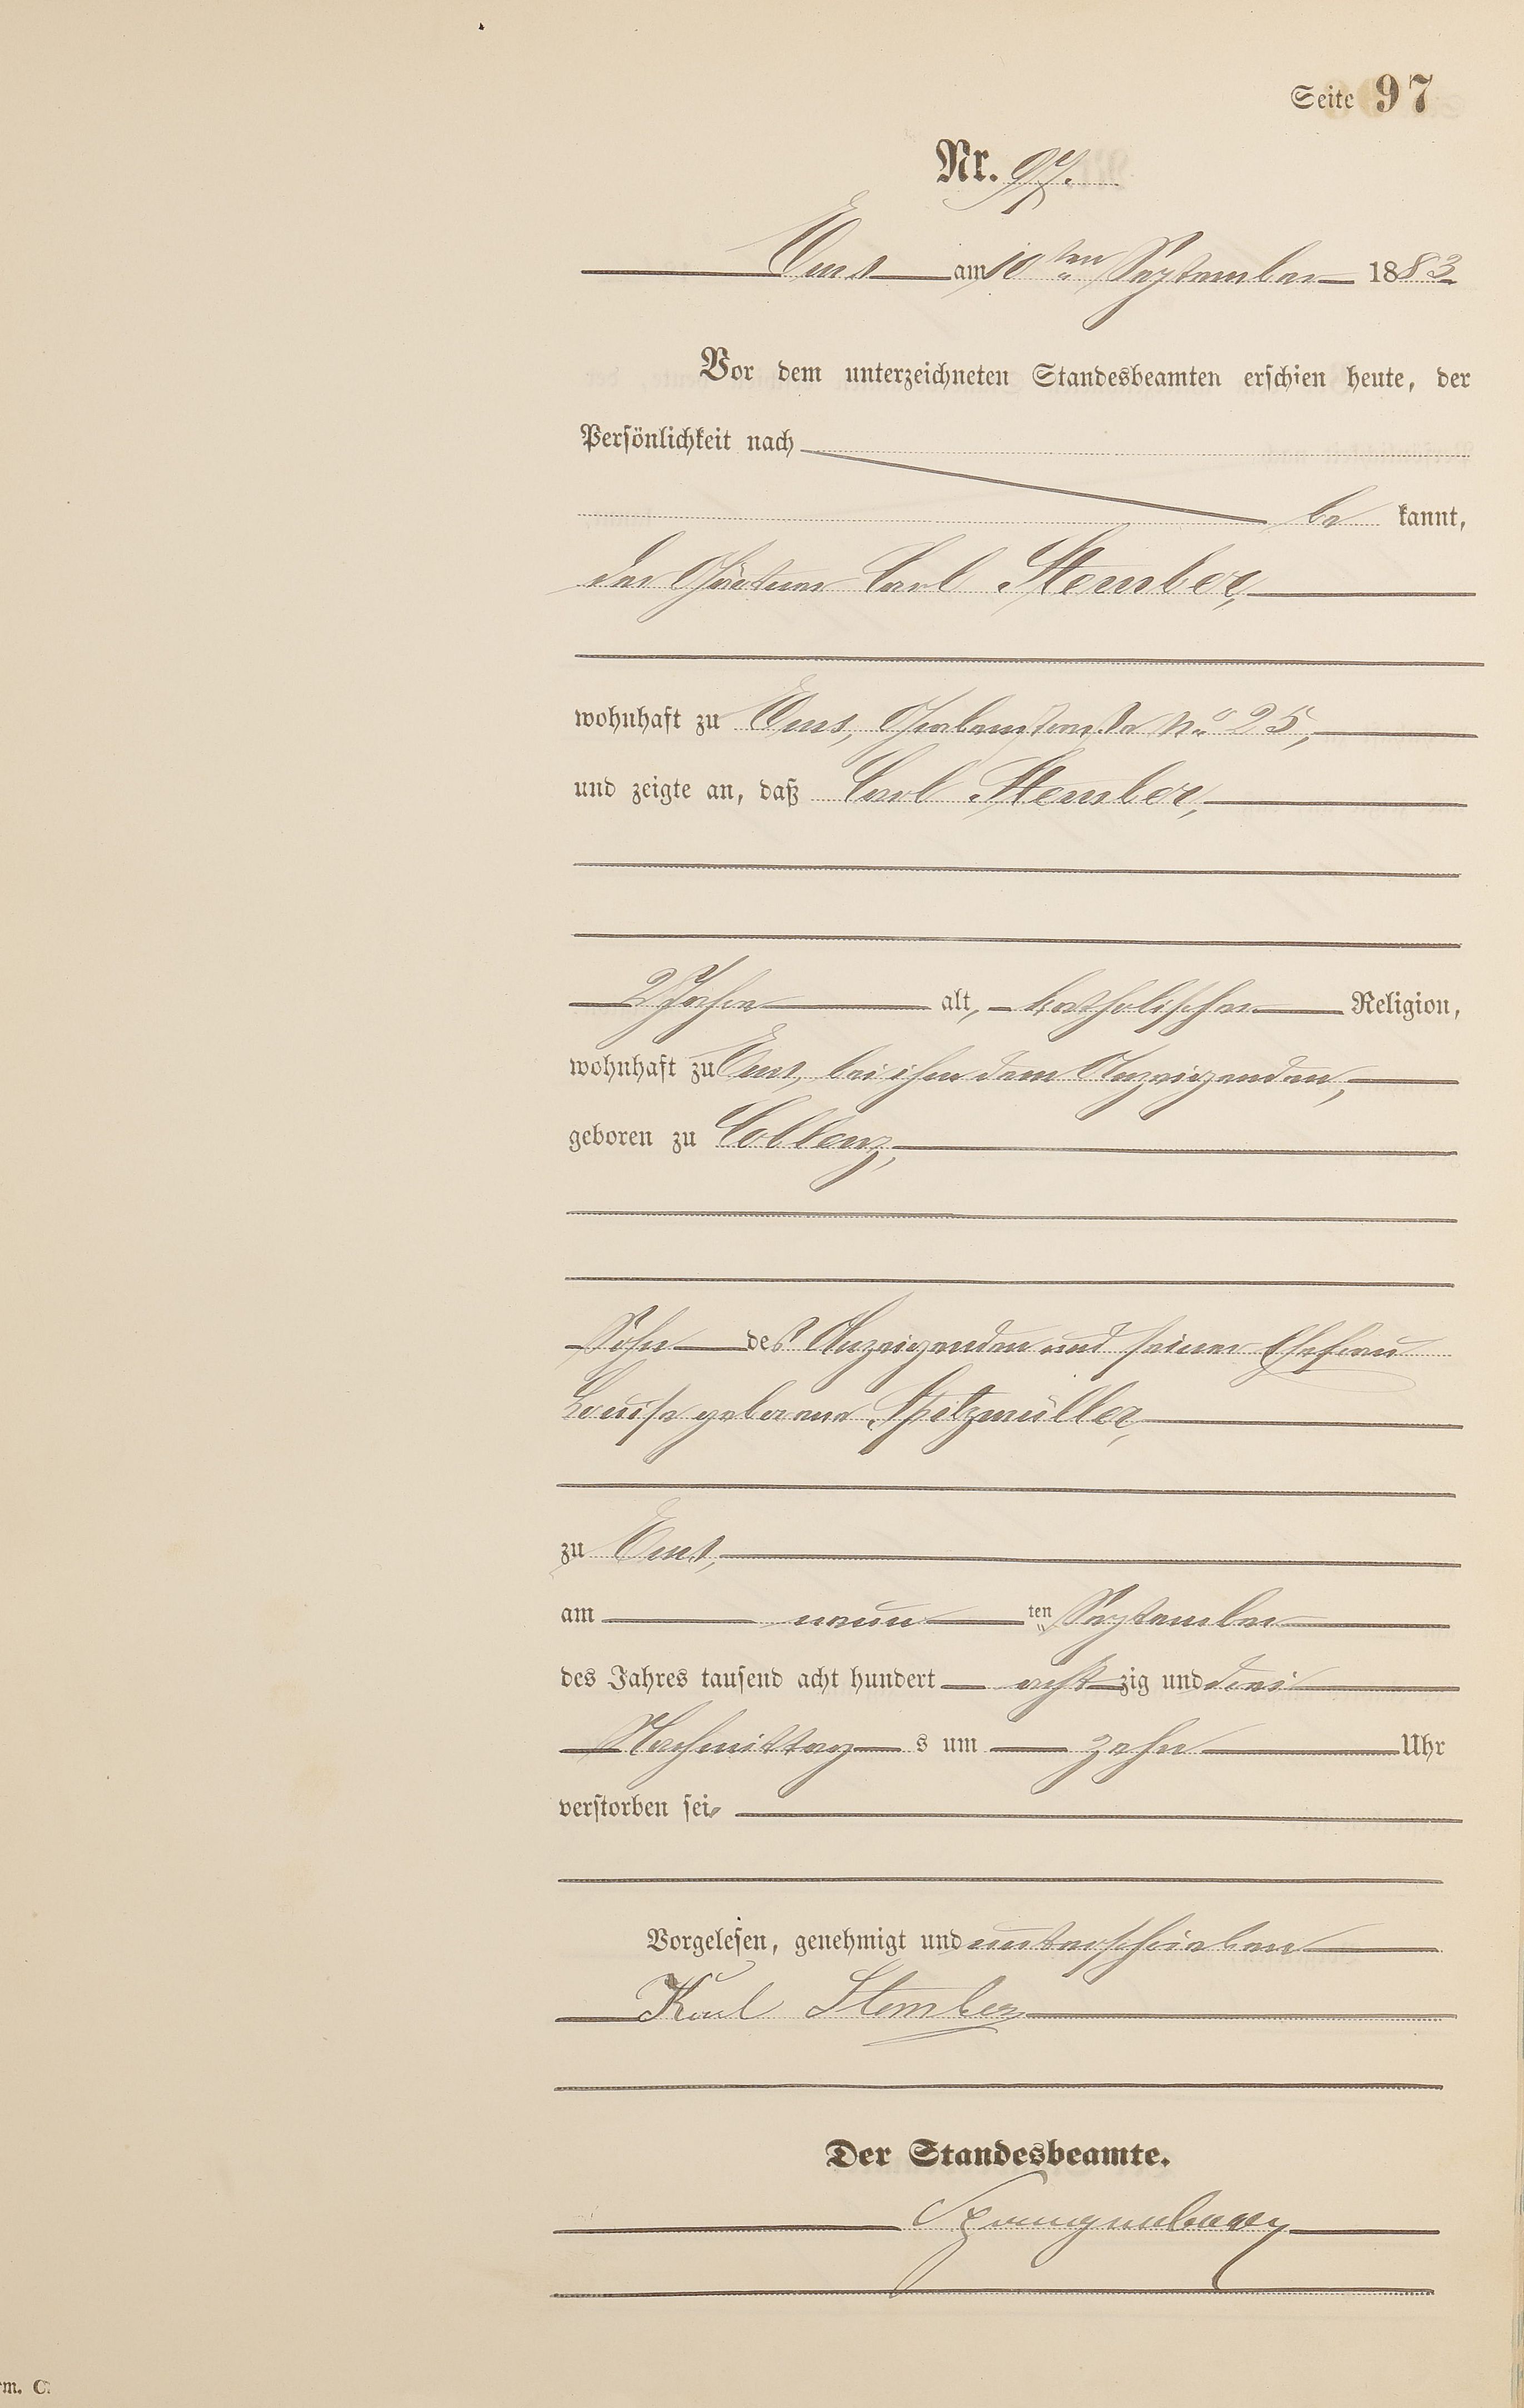 Seite 97
Nr. 97.
Ems am 10ten September 1883
Vor dem unterzeichneten Standesbeamten erschien heute, der
Persönlichkeit nach
be kannt,
der Gärtner Carl Stember,
wohnhaft zu Ems, No 25,
und zeigte an, daß Carl Stember,
2 Jahre alt, katholischer Religion,
wohnhaft zu Ems, bei ihm dem Anzeigenden,
geboren zu Coblenz,
Sohn des Anzeigenden und seiner Ehefrau
Louise geborene Spitzmüller,
zu Ems,
am neun ten September
des Jahres tausend acht hundert acht zig und drei
Nachmittag s um zehn Uhr
verstorben sei.
Vorgelesen, genehmigt und unterschrieben
Karl Stember
Der Standesbeamte.
Spangenberg
rm. C.